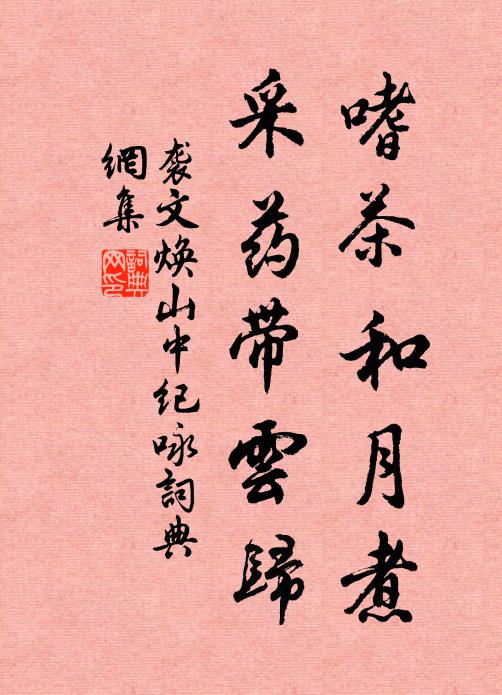 嗜茶和月煮
采药带雲歸
袭文焕山中纪咏詞典
網集
詞典
网印